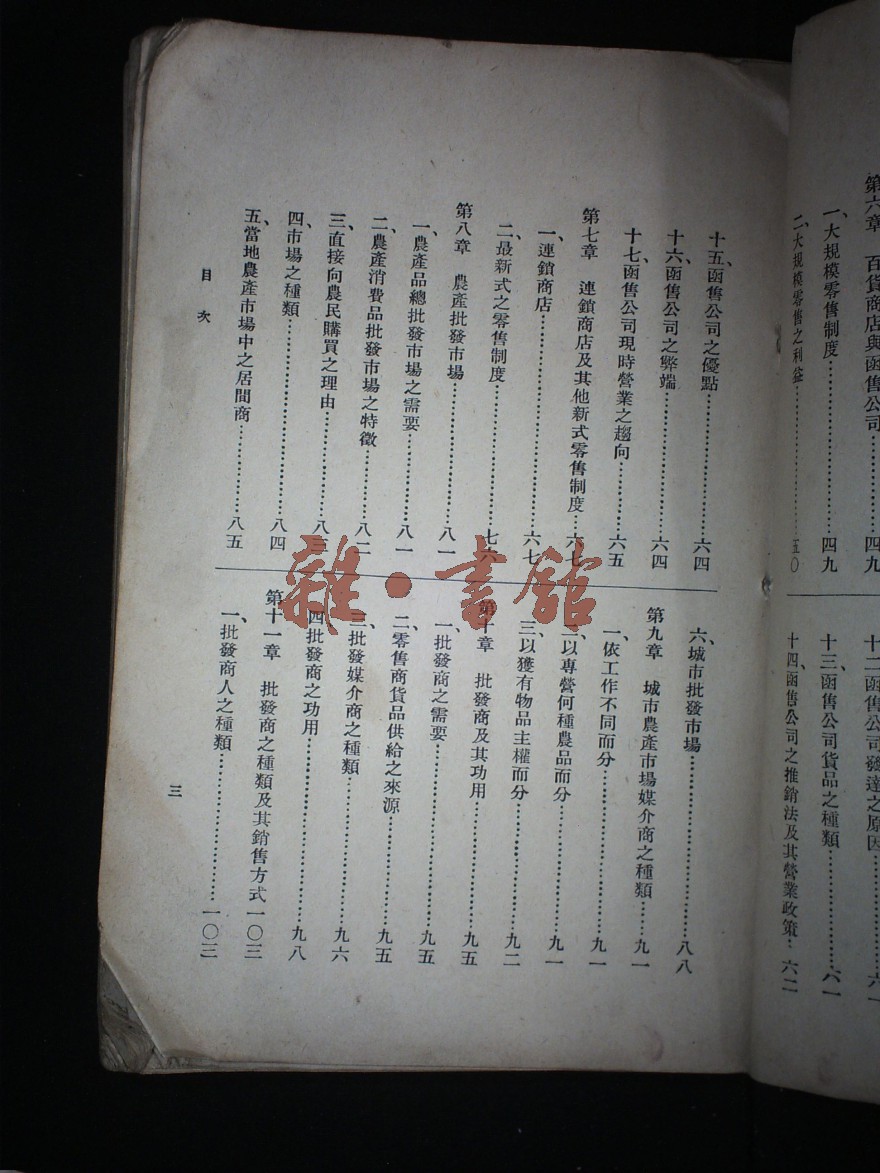 第六章 百貨商店與函售公司……四九
一、大規模零售制度……四九
二、大規模零售之利益……五〇
十二、函售公司發達之原因……六一
十三、函售公司貨品之種類……六一
十四、函售公司之推銷法及其營業政策…六二
十五、函售公司之優點……六四
十六、函售公司之弊端……六四
十七、函售公司現時營業之趨向……六五
第七章 連鎖商店及其他新式零售制度…六七
一、連鎖商店……六七
二、最新式之零售制度……七六
第八章 農產批發市場……八一
一、農產品總批發市場之需要……八一
二、農產消費品批發市場之特徵……八二
三、直接向農民購買之理由……八三
四、市場之種類……八四
五、當地農產市場中之居間商……八五
六、城市批發市場……八八
第九章 城市農產市場媒介商之種類……九一
一、依工作不同而分……九一
二、以專營何種農品而分……九一
三、以獲有物品主權而分……九二
第十章 批發商及其功用……九五
一、批發商之需要……九五
二、零售商貨品供給之來源……九五
三、批發媒介商之種類……九六
四、批發商之功用……九八
第十一章 批發商之種類及其銷售方式一〇三
一、批發商人之種類……一〇三
目次
三
雜·書館